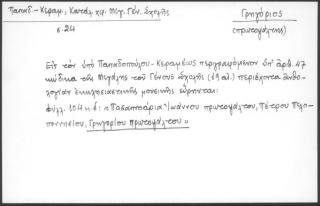 Παπαδ.-Κεραμ., Κατάλ. χφ. Μεγ. Γεν. Σχολῆς
Γρηγόριος
σ. 24
(πρωτοψάλτης)
Εἰς τὸν ὑπὸ Παπαδοπούλου-Κεραμέως περιγραφόμενον ὑπ' ἀριθ. 47
κώδικα τῆς Μεγάλης τοῦ Γένους Σχολῆς (19 αἰ.) περιέχοντα ἀνθο-
λογίαν ἐκκλησιαστικῆς μουσικῆς εὕρηνται:
φύλλ. 104 κ.ἑ.: «Πασαπνοάρια Ἰωάννου πρωτοψάλτου, Πέτρου Πελο-
ποννησίου, Γρηγορίου πρωτοψάλτου»